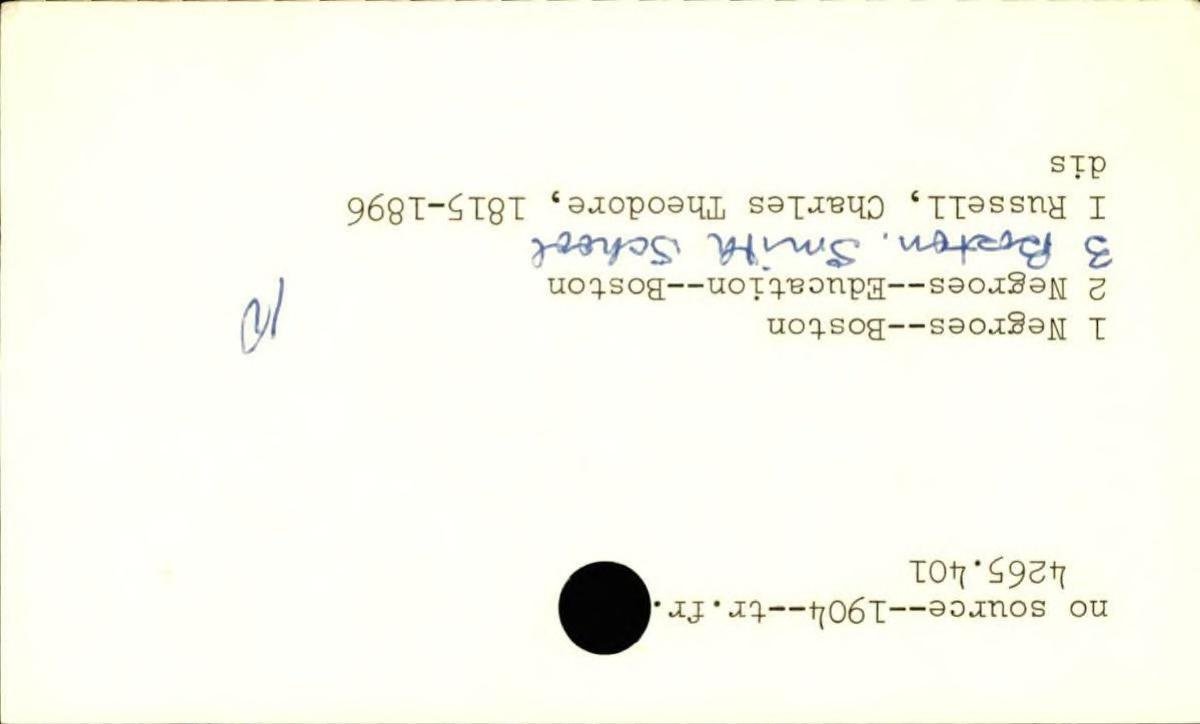 no source--1904--tr.fr.
4265.401
1 Negroes--Boston
2 Negroes--Education--Boston
3 Boston. Smith School
I Russell, Charles Theodore, 1815-1896
dis